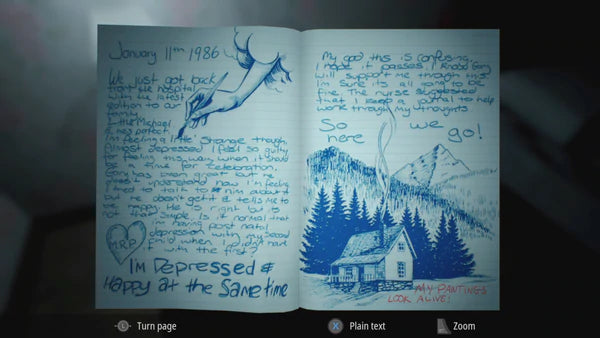 January 11th 1986
We just got back
from the hospital
with the latest
edition to our
family.
Little Michael
& he's perfect!
I'm feeling a little strange though,
Almost depressed. I feel so guilty
for feeling this way when it should
be a time for celebration.
Gary has been great but he
doesn't understand how I'm feeling
I tried to talk to him about it
but he doesn't get it & tells me to
be happy. He's right but its
not that simple. Is it normal that
I'm having post natal
depression with my second
child when I didn't have
it with the first?
M.R.P.
I'm Depressed &
Happy at the Same time
My god, this is confusing.
I hope it passes. I know Gary
will support me through this
I'm sure its all going to be
fine. The nurse suggested
that I keep a journal to help
work through my thoughts.
So we go!
here
MY PANTINGS
LOOK ALIVE!
L Turn page
X Plain text
Zoom